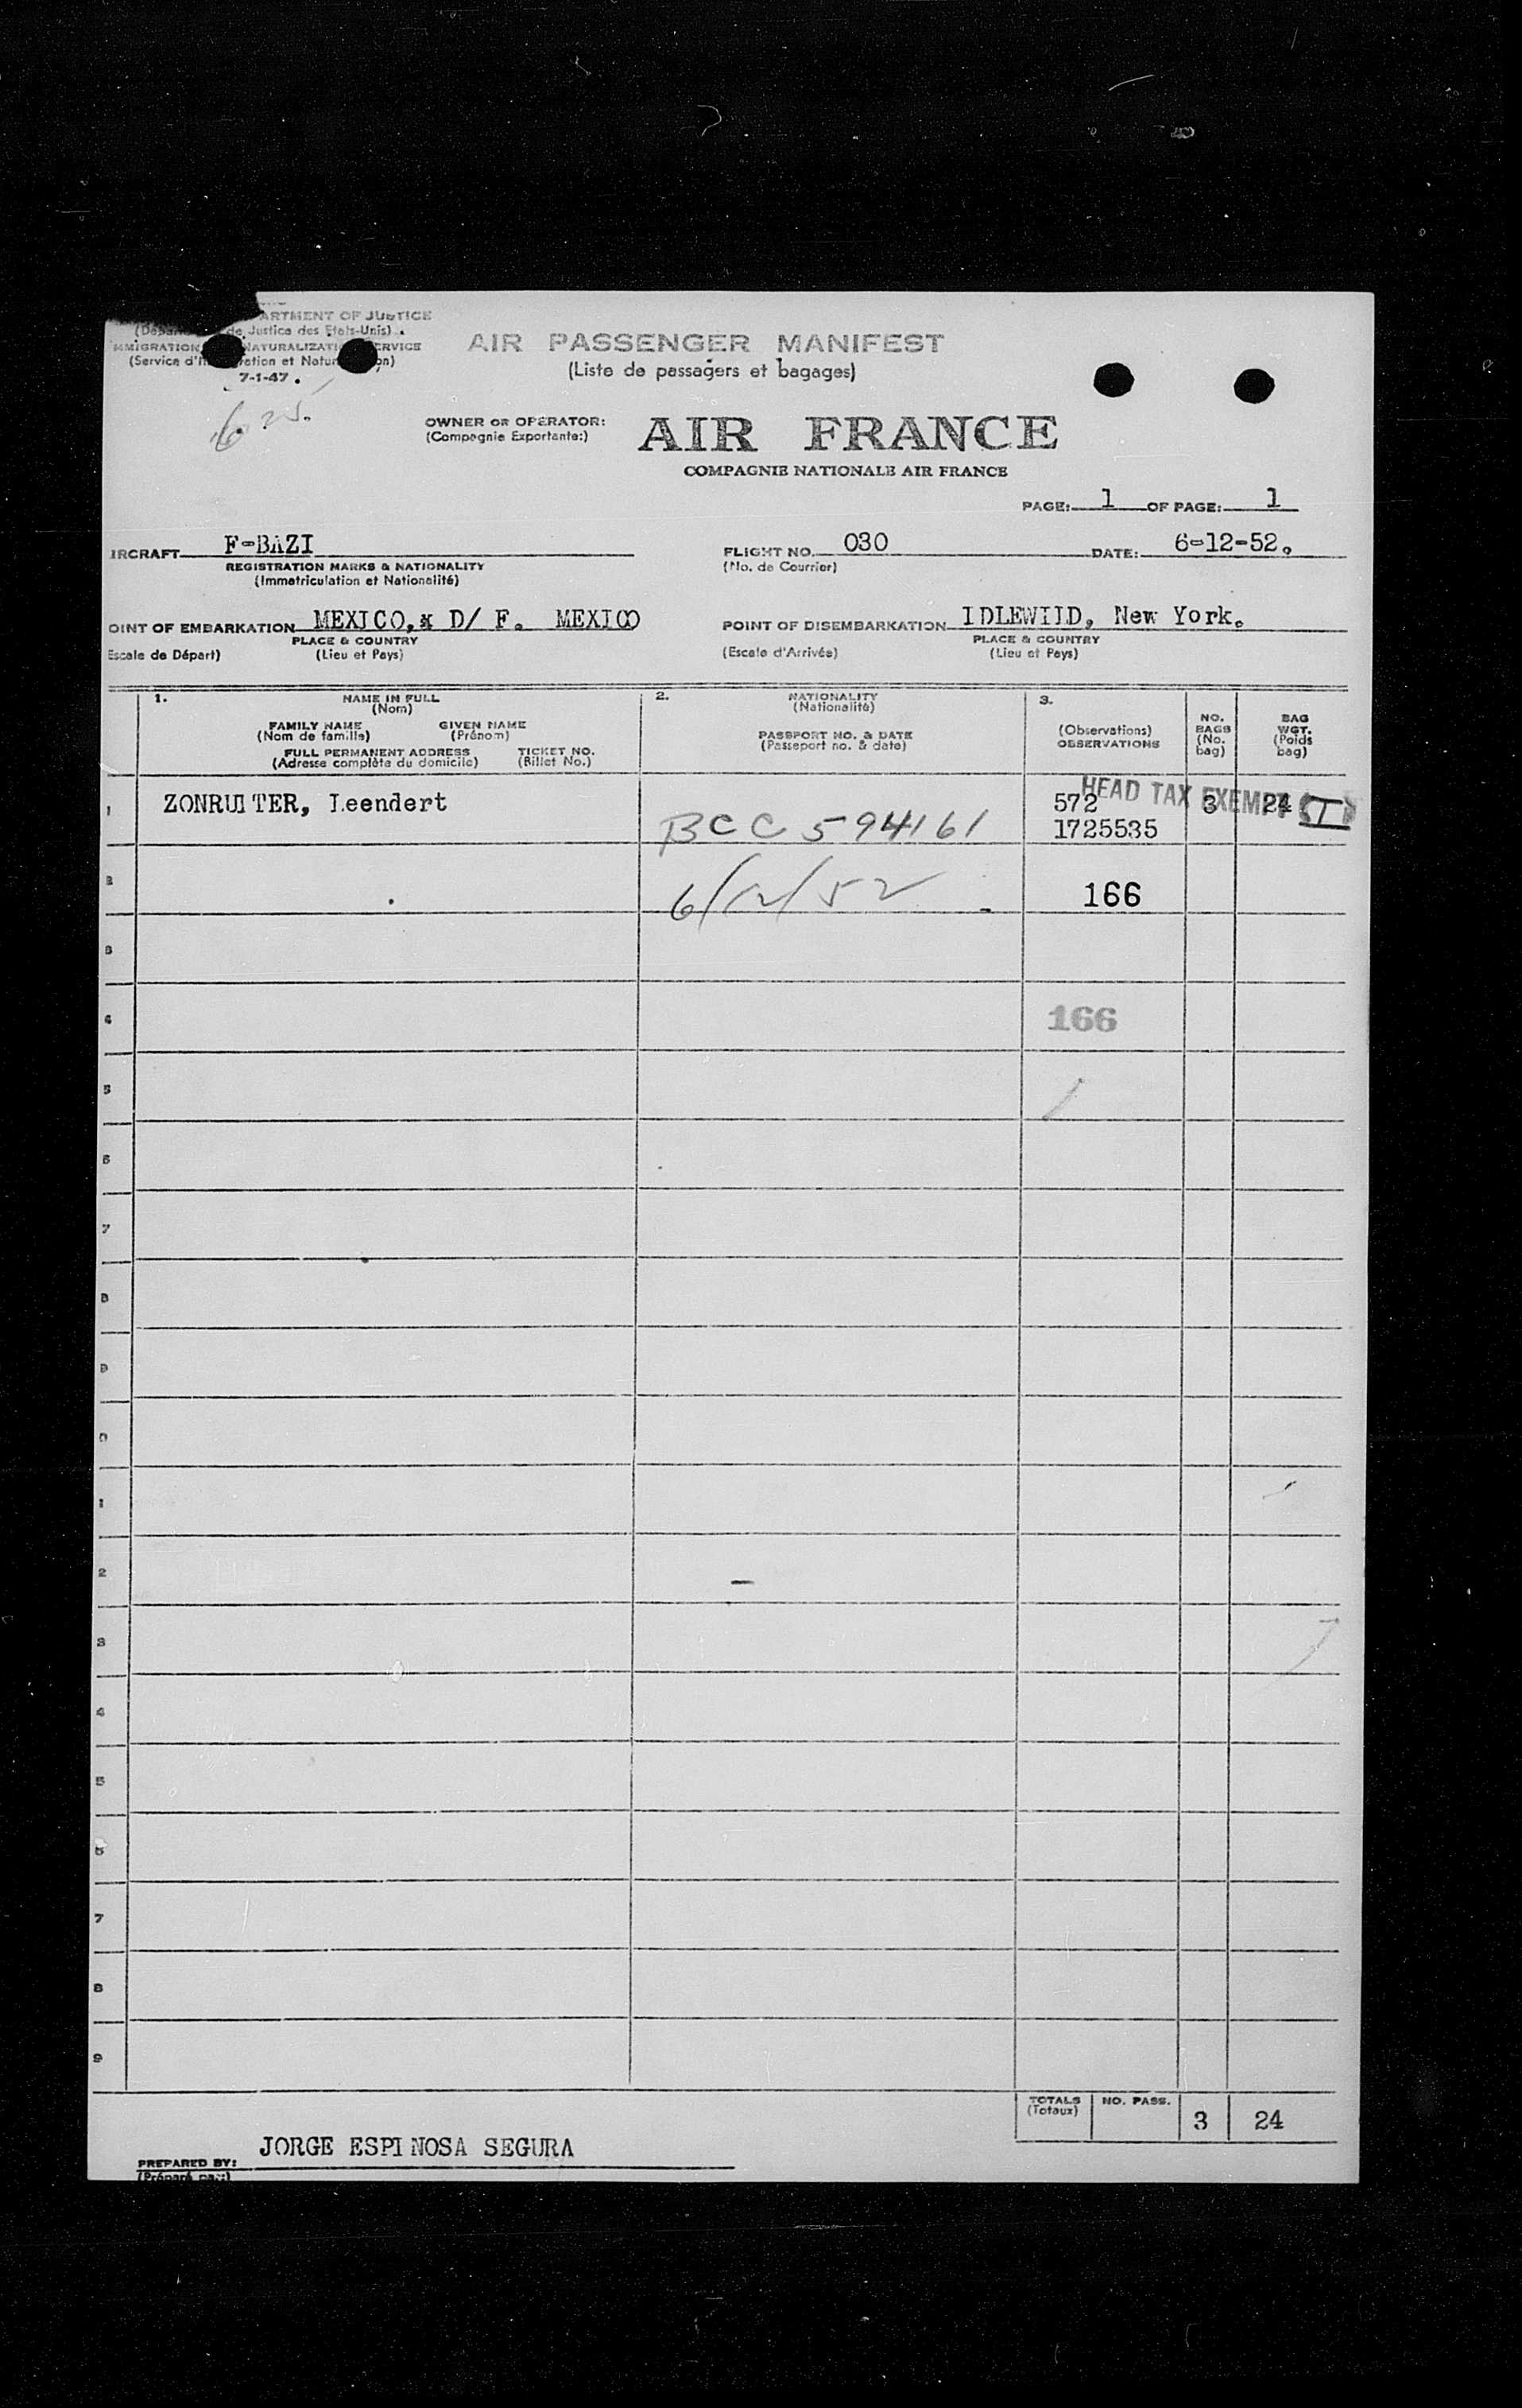 ARTMENT OF JUSTICE
de Justice des Etats-Unis)
MMIGRATION NATURALIZATI ERVICE
(Service d'I ration et Natur on)
7-1-47.
AIR PASSENGER MANIFEST
(Liste de passagers et bagages)
OWNER OR OPERATOR:
(Compagnie Exportante:)
AIR FRANCE
COMPAGNIE NATIONALE AIR FRANCE
PAGE: 1 OF PAGE: 1
IRCRAFT F-BAZI
REGISTRATION MARKS & NATIONALITY
(Immatriculation et Nationalité)
FLIGHT NO. 030
(No. de Courrier)
DATE: 6-12-52.
OINT OF EMBARKATION MEXICO,x D/ F. MEXICO
PLACE & COUNTRY
Escale de Départ) (Lieu et Pays)
POINT OF DISEMBARKATION IDLEWILD, New York.
PLACE & COUNTRY
(Escale d'Arrivée) (Lieu et Pays)
1. NAME IN FULL
(Nom)
FAMILY NAME GIVEN NAME
(Nom de famille) (Prénom)
FULL PERMANENT ADDRESS TICKET NO.
(Adresse complète du domicile) (Billet No.)
2. NATIONALITY
(Nationalité)
PASSPORT NO. & DATE
(Passeport no. & date)
3.
(Observations)
OBSERVATIONS
NO.
BAGS
(No.
bag)
BAG
WGT.
(Poids
bag)
1 ZONRUITER, Leendert
BCC 594161
HEAD TAX EXEMPT
572 3 24
1725535
2 6/12/52 166
3
4 166
5
6
7
8
9
0
1
2
3
4
5
6
7
8
9
TOTALS NO. PASS.
(Totaux)
3 24
PREPARED BY: JORGE ESPINOSA SEGURA
(Préparé par:)